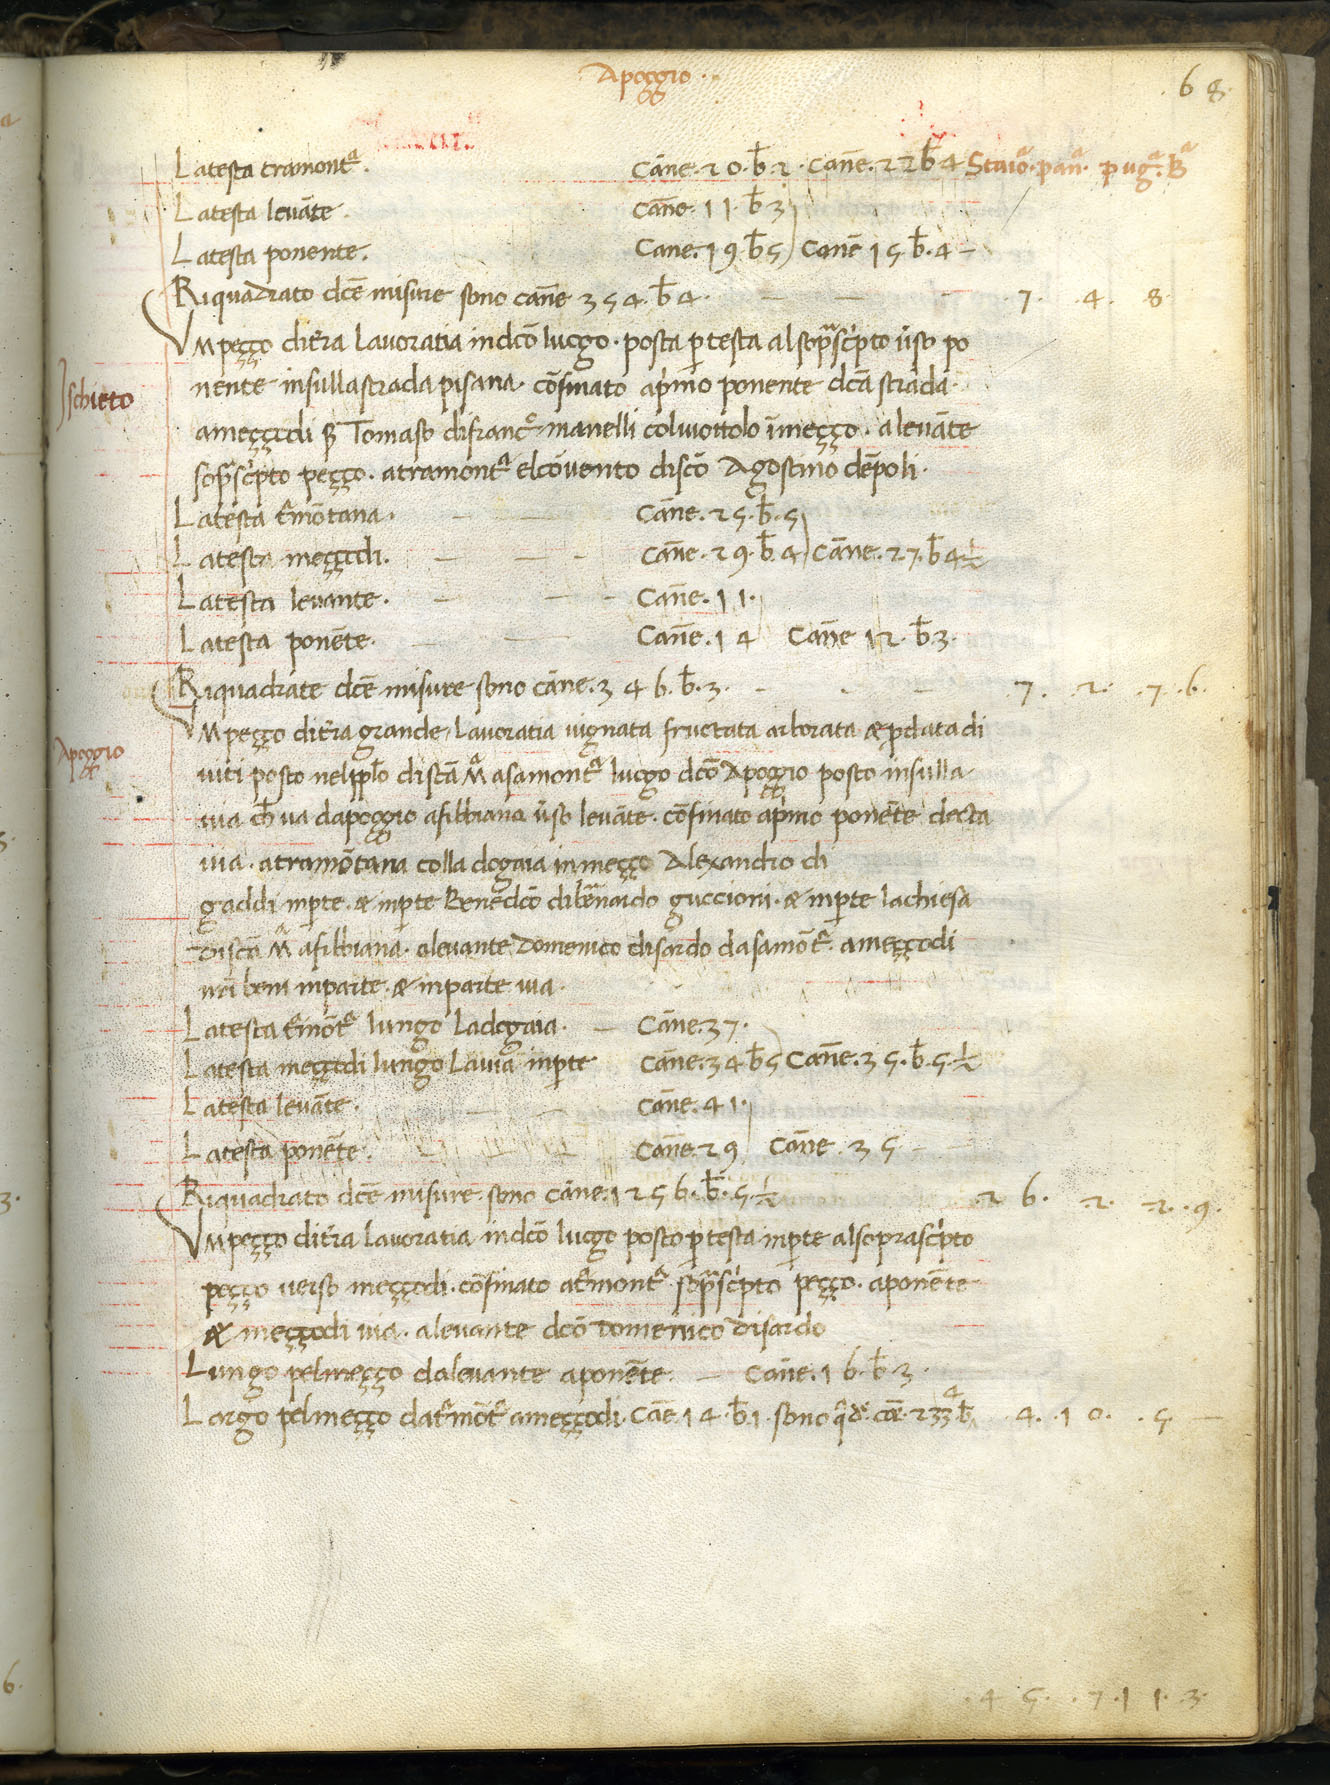 Apoggio
68
Latesta tramontª. Cãne. 20. b̄. 2. Canē. 22 b̄ 4 Staiоª. panª. pugª. Bª
Latesta levãte. Canē. 11. b̄ 3
Latesta ponente. Cane. 19 b̄ 5 Canē 15 b̄. 4
Riquadrato dcē misure sono canē 354. b̄ 4. 7. 4. 8.
Vm peçço diťra lavoratia indcō luogo. posta ptesta alsoprascṗto ṽso po
Ischieto
nente insullastrada pisana. cōfinato apṙmo ponente dcā strada.
ameççodi S Tomaso difrancº manelli colviottolo ĩmeçço. alevãte
soprascṗto peçço. atramontª elcōvento discō Agostino dēpoli.
Latesta tṙmōtana. Cãne. 25. b̄. 5
Latesta meççodi. Canē. 29. b̄. 4 Cãne. 27. b̄ 4 ½
Latesta levante. Canē. 11.
Latesta ponēte. Canē. 14 Canē 12. b̄. 3.
Riquadrate dcē misure sono cãne. 346. b̄. 3. 7. 2. 7. 6.
Vm peçço diťra grande Lavoratia vignata fructata arborata & pdata di
Apoggio
viti posto nelpplo discā Mª asamontª luogo dcō Apoggio posto insulla
via ch̄ va dapoggio afibbiana ṽso levãte. cōfinato apṙmo ponēte decta
via. atramōtana colla dogaia inmeçço Alexandro di
gaddi inpte. & inpte Benedcō dibernardo guccioni. & inpte lachiesa
discā Mª afibbiana. alevante Domenico disardo dasamōtª. ameççodi
nr̄i beni inparte. & inparte via.
Latesta tṙmōtª lungo ladogaia. Cãne. 37.
Latesta meççodi lungo Lavia inpte Cãne. 34 b̄ 5 Canē. 35. b̄. 5. ½
Latesta levãte. Cãne. 41.
Latesta ponēte. Canē. 29 Canē. 35
Riquadrato dcē misure sono cãne. 1256. b̄. 5. ½ 26. 2. 2. 9.
Vm peçço diťra lavoratia indcō luogo posto ptesta inpte alsoprascṗto
peçço verso meççodi. cōfinato atṙmontª soprascṗto peçço. aponēte
& meççodi via. alevante dcō domenico disardo
Lungo pelmeçço dalevante aponēte. Canē. 16. b̄. 3.
Largo pelmeçço datṙmōtª ameççodi. Canē. 14. b̄. 1. sono 233 b̄ 4 4. 10. 5.
45. 7. 11. 3.